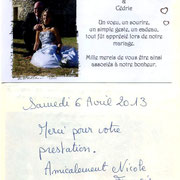 &
Cédric
Un voeu, un sourire,
un simple geste, un cadeau,
tout fût apprécié lors de notre
mariage.
Mille mercis de vous être ainsi
associés à notre bonheur.
Samedi 6 Avril 2013
Merci pour votre
prestation.
Amicalement Nicole